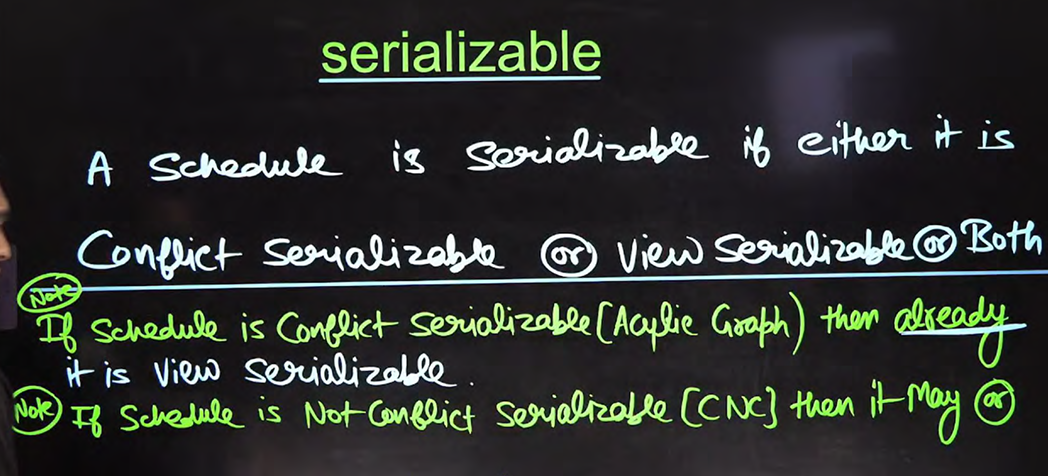 serializable
A Schedule is Serializable if either it is
Conflict Serializable (or) View Serializable (or) Both
(Note)
If Schedule is Conflict Serializable (Acylic Graph) then already
it is View Serializable.
(Note) If Schedule is Not-Conflict Serializable [CNC] then it May (or)